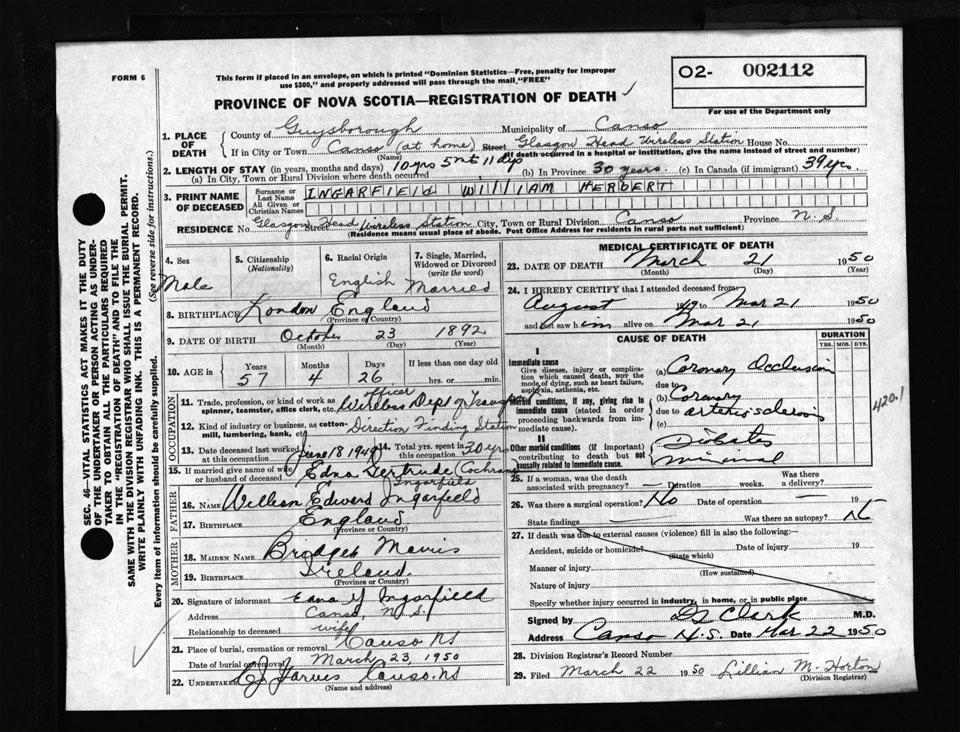 FORM 6
This form if placed in an envelope, on which is printed "Dominion Statistics—Free, penalty for improper
use $300," and properly addressed will pass through the mail "FREE"
PROVINCE OF NOVA SCOTIA—REGISTRATION OF DEATH
O2- 002112
For use of the Department only
1. PLACE OF DEATH
County of Guysborough Municipality of Canso
If in City or Town Canso (at home) Street Glasgow Head Wireless Station House No.
(Name) (If death occurred in a hospital or institution, give the name instead of street and number)
2. LENGTH OF STAY (in years, months and days)
(a) In City, Town or Rural Division where death occurred 10 yrs 5 mt 11 dys (b) In Province 30 years. (c) In Canada (if immigrant) 39 yrs
3. PRINT NAME OF DECEASED
Surname or Last Name INGARFIELD WILLIAM HERBERT
All Given or Christian Names
RESIDENCE No. Street Glasgow Head Wireless Station City, Town or Rural Division Canso Province N.S.
(Residence means usual place of abode. Post Office Address for residents in rural parts not sufficient)
4. Sex Male
5. Citizenship (Nationality)
6. Racial Origin English
7. Single, Married, Widowed or Divorced (write the word) Married
8. BIRTHPLACE London England
(Province or Country)
9. DATE OF BIRTH October 23 1892
(Month) (Day) (Year)
10. AGE in Years 57 Months 4 Days 26 If less than one day old hrs. or min.
OCCUPATION
11. Trade, profession, or kind of work as spinner, teamster, office clerk, etc. Wireless officer Dept of Transport
12. Kind of industry or business, as cotton-mill, lumbering, bank, etc. Direction Finding Station
13. Date deceased last worked at this occupation June 18 1949
14. Total yrs. spent in this occupation 30 yrs
15. If married give name of wife or husband of deceased Edna Gertrude (Cochrane) Ingarfield
FATHER
16. NAME William Edward Ingarfield
17. BIRTHPLACE England
(Province or Country)
MOTHER
18. MAIDEN NAME Bridget Morris
19. BIRTHPLACE Ireland
(Province or Country)
20. Signature of informant Edna G Ingarfield
Address Canso, N.S.
Relationship to deceased wife
21. Place of burial, cremation or removal Canso NS
Date of burial or removal March 23, 1950
22. UNDERTAKER CJ Jarvis Canso, NS
(Name and address)
MEDICAL CERTIFICATE OF DEATH
23. DATE OF DEATH March 21 1950
(Month) (Day) (Year)
24. I HEREBY CERTIFY that I attended deceased from
August 1949 to Mar 21 1950
and last saw him alive on Mar 21 1950
CAUSE OF DEATH
DURATION
YRS. MOS. DYS.
I
Immediate cause
Give disease, injury or complication which caused death, NOT the mode of dying, such as heart failure, asphyxia, asthenia, etc.
(a) Coronary Occlusion
due to
Morbid conditions, if any, giving rise to immediate cause (stated in order proceeding backwards from immediate cause).
(b) Coronary
due to arteriosclerosis
(c)
II
Other morbid conditions (if important) contributing to death but not causally related to immediate cause.
Diabetes
minimal
420.1
25. If a woman, was the death associated with pregnancy? — Duration weeks. Was there a delivery?
26. Was there a surgical operation? No Date of operation — 19
State findings — Was there an autopsy? N
27. If death was due to external causes (violence) fill in also the following:—
Accident, suicide or homicide? Date of injury 19
(State which)
Manner of injury
(How sustained)
Nature of injury
Specify whether injury occurred in industry, in home, or in public place
Signed by Clark M.D.
Address Canso N.S. Date Mar 22 1950
28. Division Registrar's Record Number
29. Filed March 22 1950 Lillian M. Horton
(Division Registrar)
SEC. 46—VITAL STATISTICS ACT MAKES IT THE DUTY
OF THE UNDERTAKER OR PERSON ACTING AS UNDERTAKER
TO OBTAIN ALL THE PARTICULARS REQUIRED
IN THE "REGISTRATION OF DEATH" AND TO FILE THE
SAME WITH THE DIVISION REGISTRAR WHO SHALL ISSUE THE BURIAL PERMIT.
WRITE PLAINLY WITH UNFADING INK. THIS IS A PERMANENT RECORD.
Every item of information should be carefully supplied. (See reverse side for instructions.)